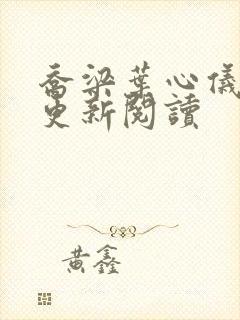 喬梁葉心儀
更新閱讀
黃鑫